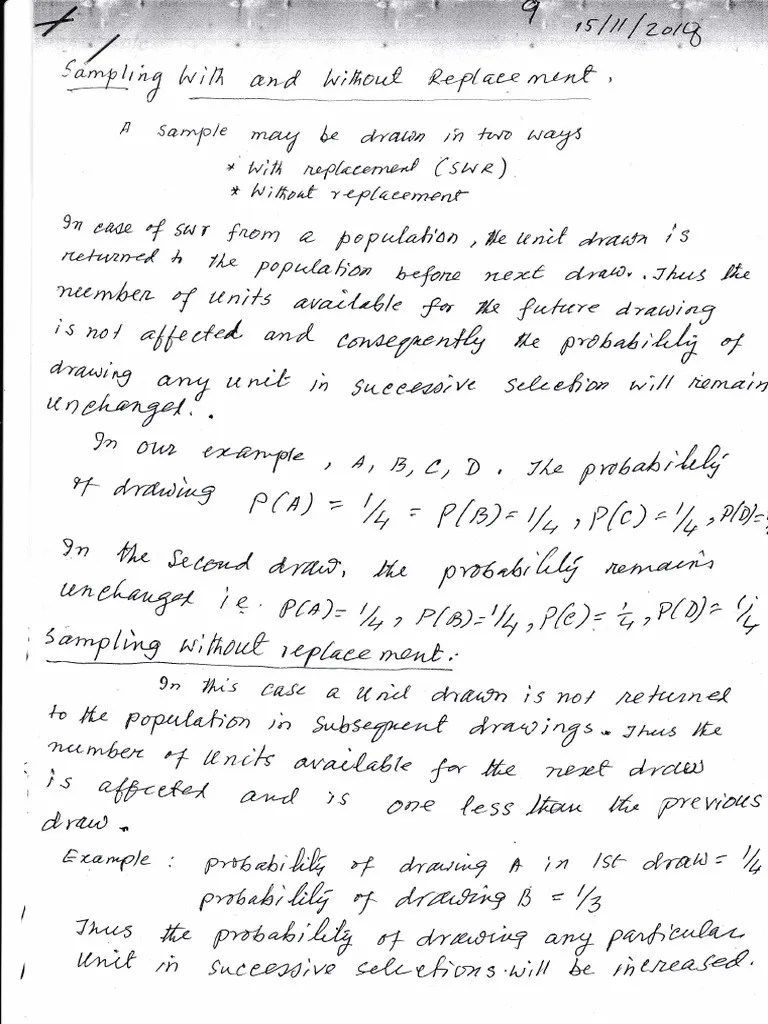 9
15/11/2018
Sampling With and Without Replacement.
A sample may be drawn in two ways
* With replacement (SWR)
* Without replacement
In case of swr from a population, the unit drawn is
returned to the population before next draw. Thus the
number of units available for the future drawing
is not affected and consequently the probability of
drawing any unit in successive selection will remain
unchanged.
In our example, A, B, C, D. The probability
of drawing P(A) = 1/4 = P(B) = 1/4, P(C) = 1/4, P(D)=
In the second draw, the probability remains
unchanged i.e. P(A)= 1/4, P(B)=1/4, P(C)= 1/4, P(D)= 1/4
Sampling without replacement:
In this case a unit drawn is not returned
to the population in subsequent drawings. Thus the
number of units available for the next draw
is affected and is one less than the previous
draw.
Example: probability of drawing A in 1st draw= 1/4
probability of drawing B = 1/3
Thus the probability of drawing any particular
unit in successive selections will be increased.